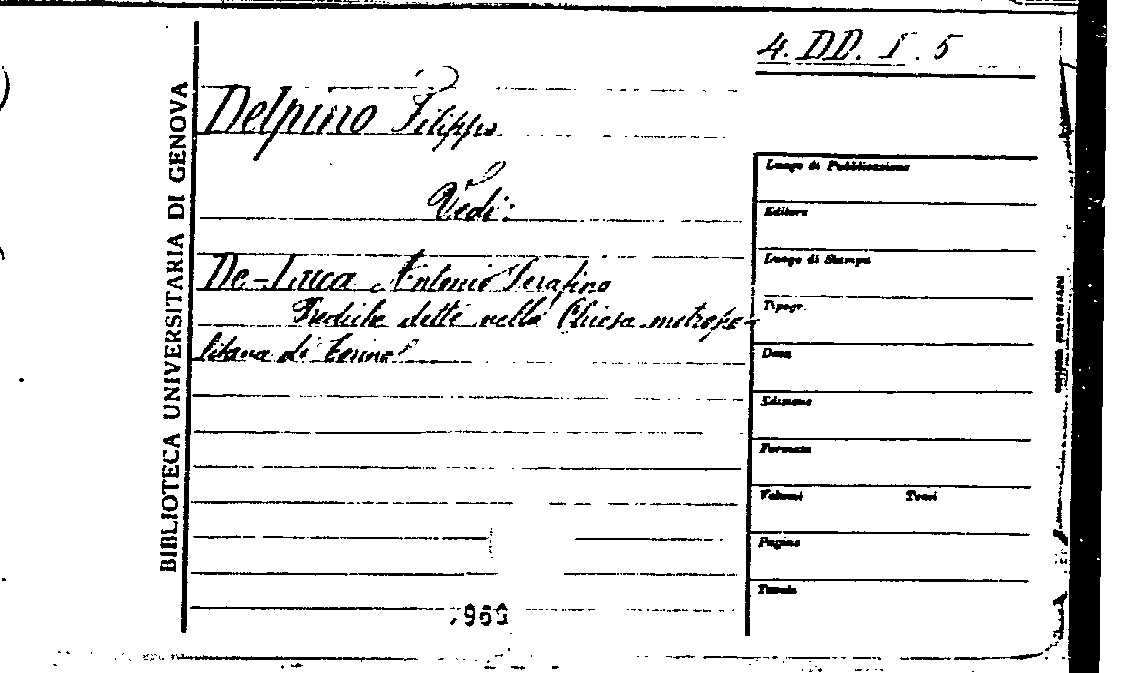 4. DD. I. 5
BIBLIOTECA UNIVERSITARIA DI GENOVA
Delpino Filippo
Vedi:
De-Luca, Antonio Serafino
Prediche dette nella Chiesa metropo-
litana di Torino
Luogo di Pubblicazione
Editore
Luogo di Stampa
Tipogr.
Data
Edizione
Formato
Volumi Tomi
Pagine
Tavole